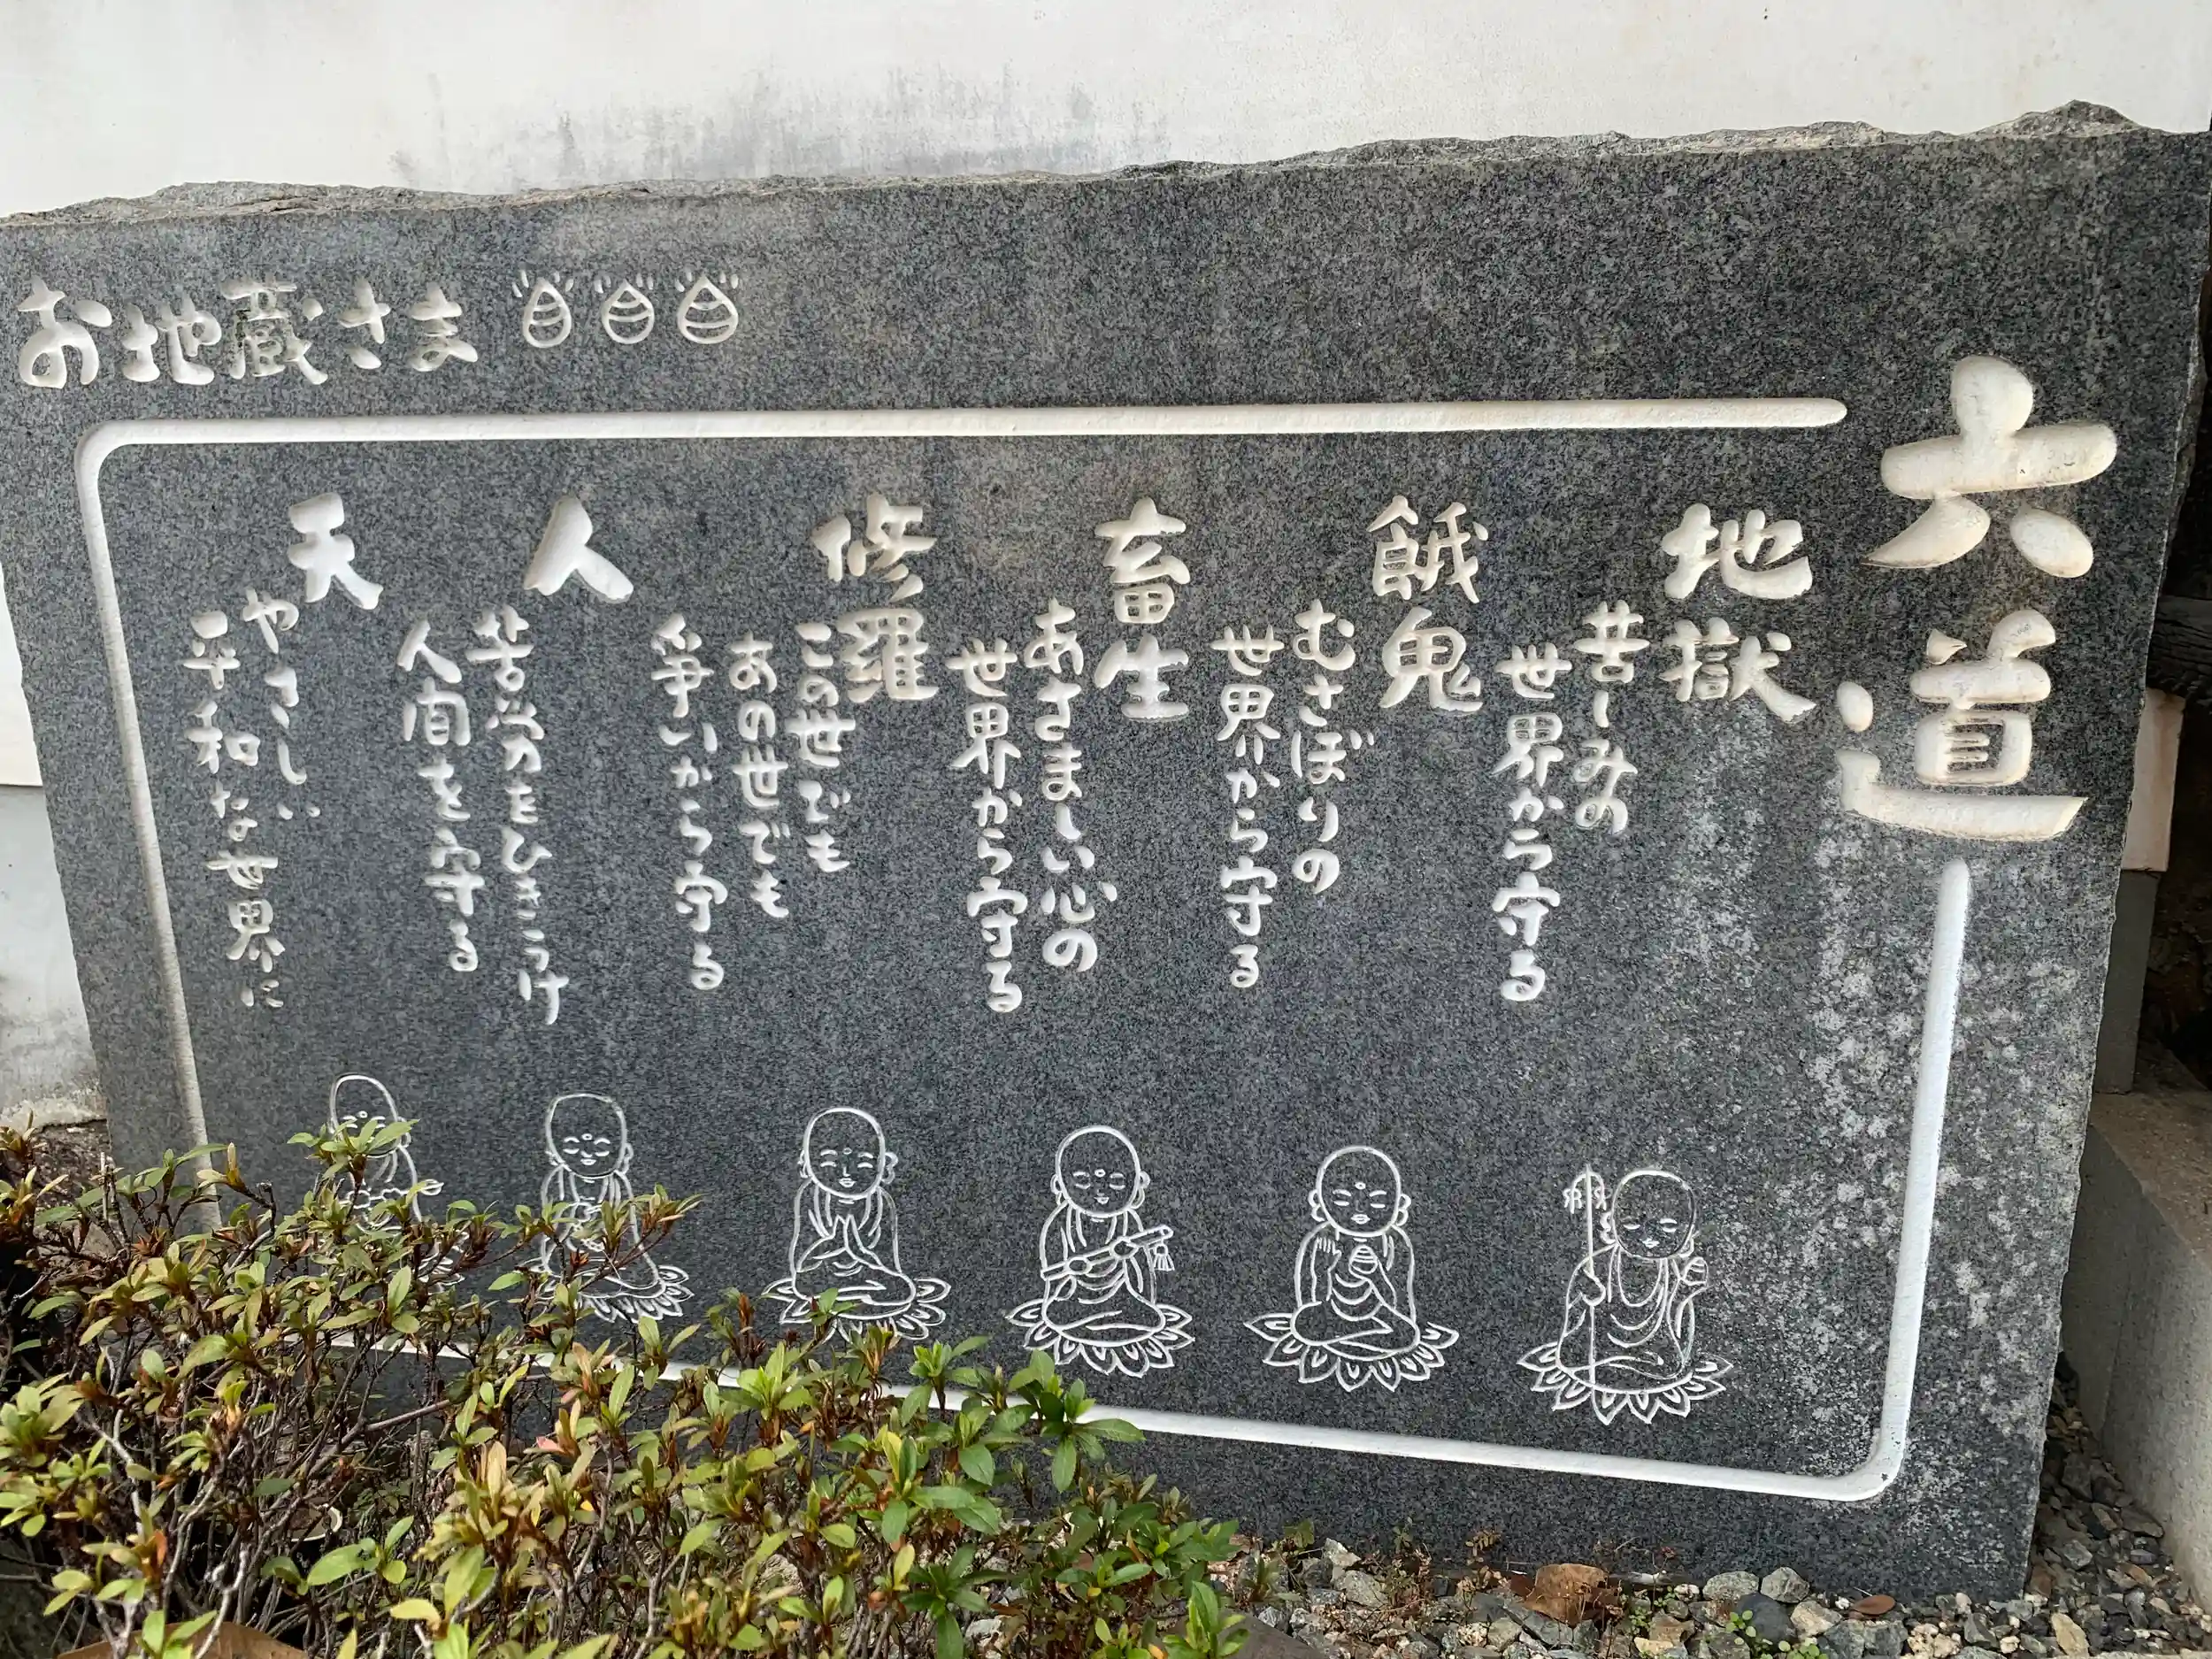 六道
地獄
苦しみの
世界から守る
餓鬼
むさぼりの
世界から守る
畜生
あさましい心の
世界から守る
修羅
この世でも
あの世でも
争いから守る
人
苦労をひきうけ
人間を守る
天
やさしい
平和な世界に
お地蔵さま